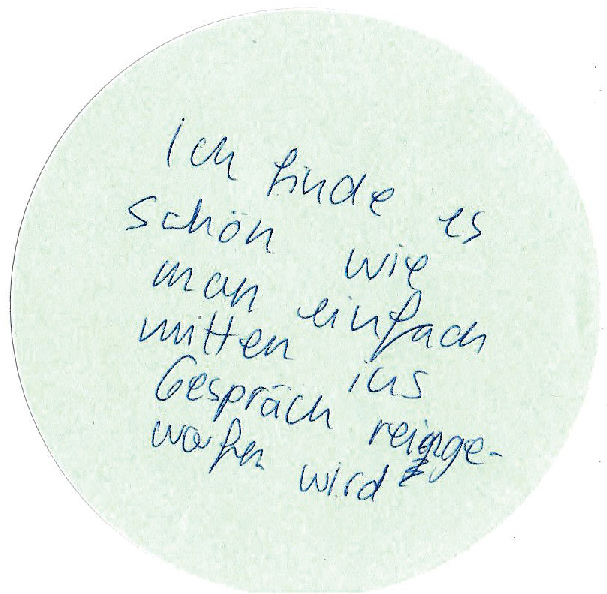 Ich finde es
schön wie
man einfach
mitten ins
Gespräch reinge-
worfen wird